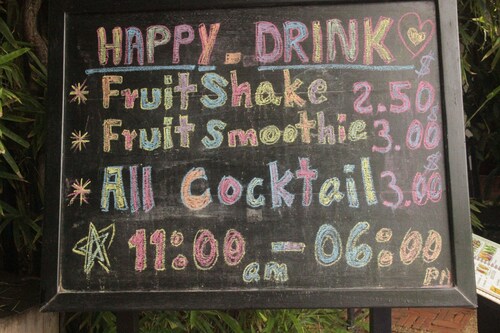 HAPPY. DRINK
* Fruit Shake 2.50 $
* Fruit Smoothie 3.00 $
* All Cocktail 3.00 $
☆ 11:00 am - 06:00 pm